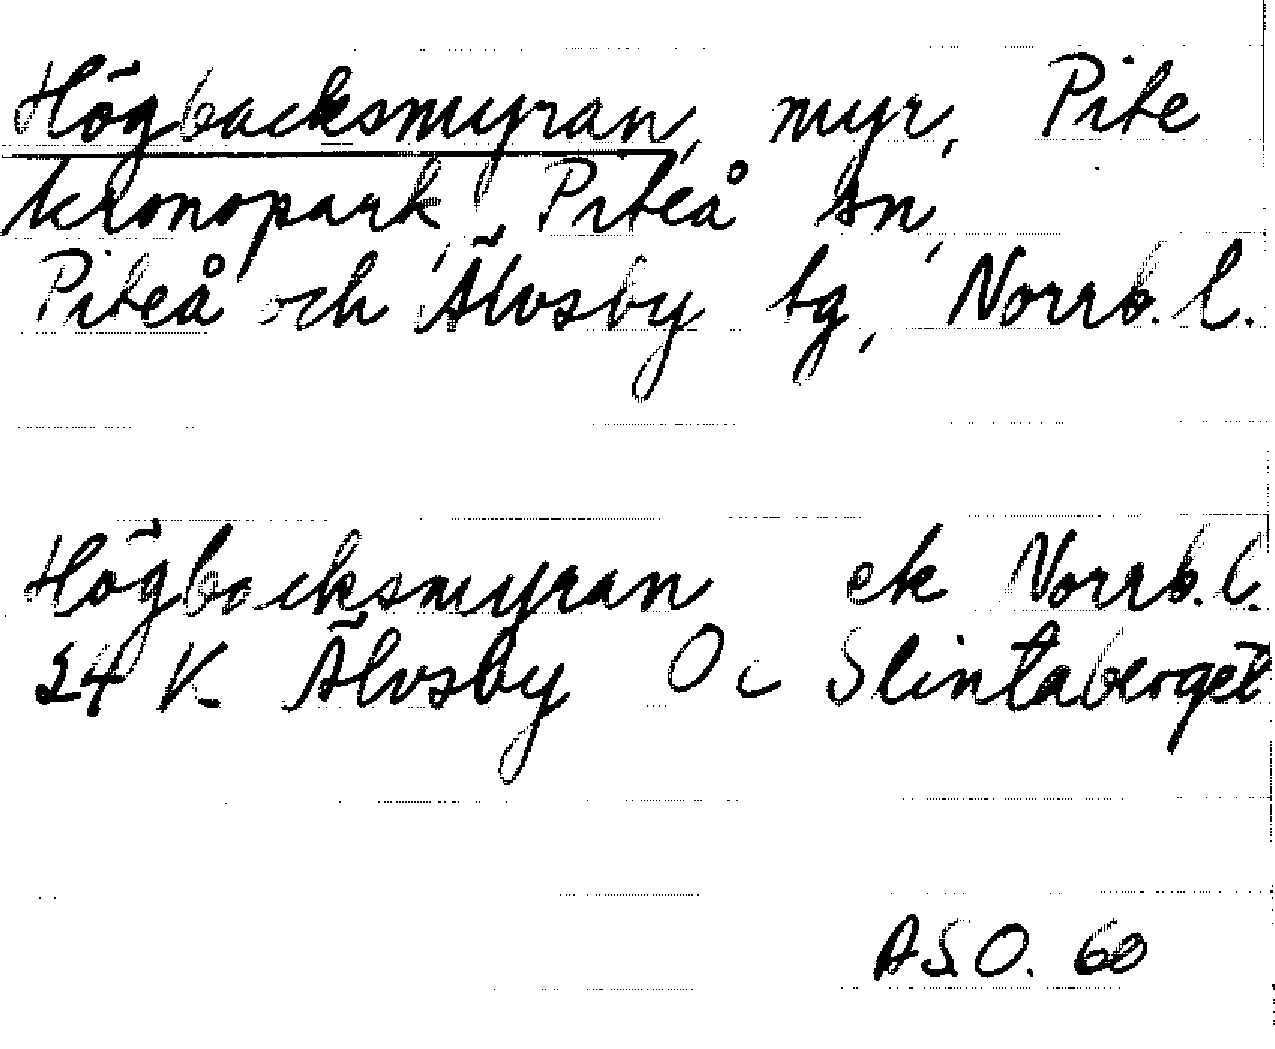 Högbacksmyran, myr, Pite
kronopark, Piteå sn,
Piteå och Älvsby tg, Norrb. l.
Högbacksmyran ek Norrb. l.
24 K Älvsby Ö Slintaberget
A.S.O. 60